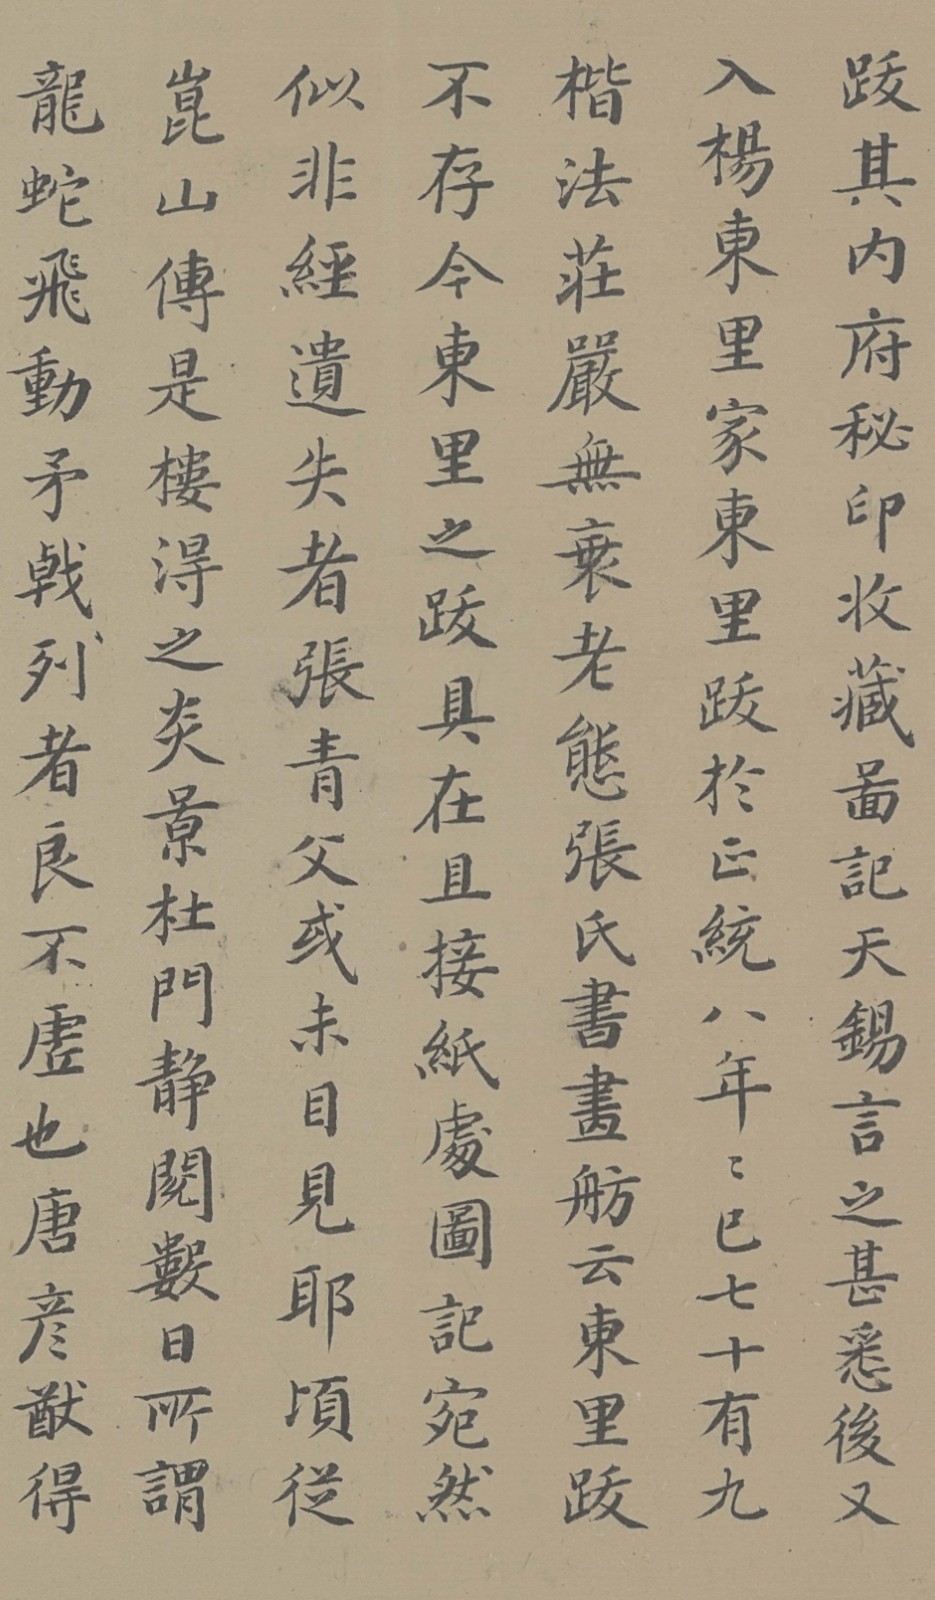 跋其内府秘印收藏啚記天錫言之甚悉後又
入楊東里家東里跋於正統八年〻巳七十有九
楷法莊嚴無衰老態張氏書畫舫云東里跋
不存今東里之跋具在且接紙處圖記宛然
似非經遺失者張青父或未目見耶頃從
崑山傳是樓淂之炎景杜門静閲數日所謂
龍蛇飛動矛戟列者良不虛也唐彦猷得